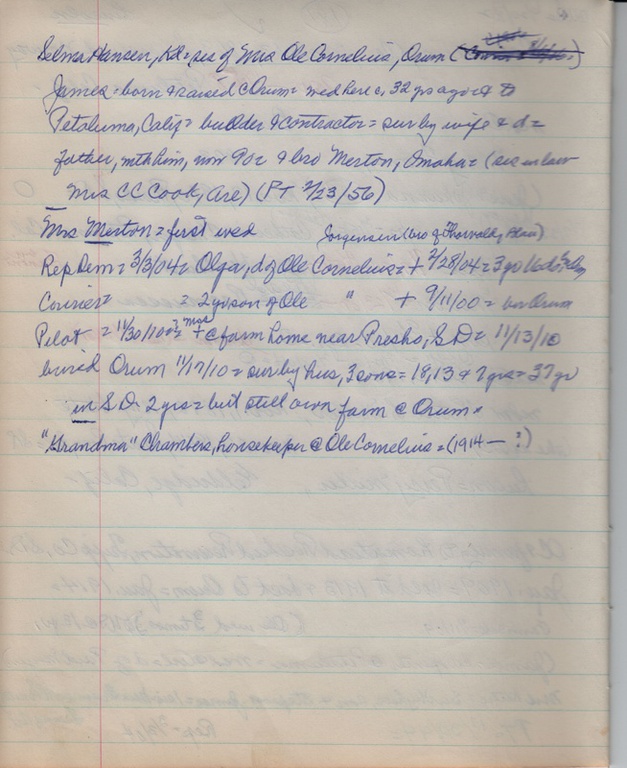 Selma Hansen, Kd = sis of Mrs Ole Cornelius, Orum
James = born & raised @ Orum = wed here c. 32 yrs ago & to
Petaluma, Calif = builder & contractor = sur by wife & d =
father, mth him, now 90 = & bro Merton, Omaha = (sis in law
Mrs C C Cook, Are) (PT 2/23/56)
Mrs Merton = first wed Jorgensen (bro of Thorvald, Blair)
Rep Dem = 3/3/04 = Olga, d of Ole Cornelius = + 2/28/04 = 3 yo
Courier = 2 yo son of Ole " + 9/11/00 = bur Orum
Pilot = 11/30/10 = Mrs + @ farm home near Presho, S.D = 11/13/10
buried Orum 11/17/10 = sur by hus, 3 sons = 18, 13 & 7 yrs = 37 yr
in S.D. 2 yrs = but still own farm @ Orum =
"Grandma" Chambers, housekeeper @ Ole Cornelius = (1914 — ?)